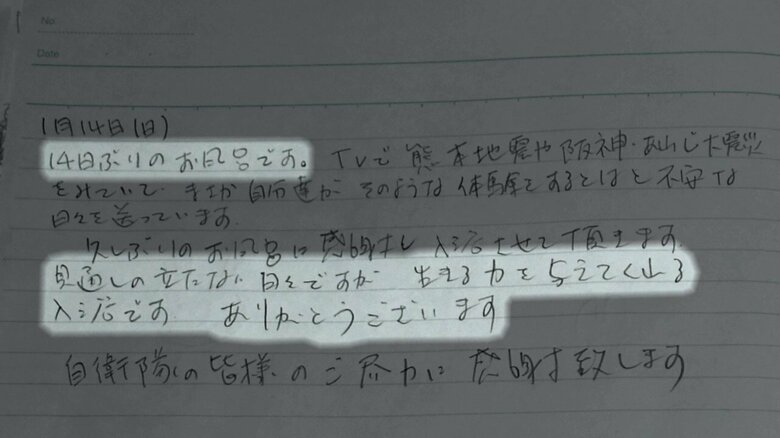 No.
Date
1月14日(日)
14日ぶりのお風呂です。 TVで熊本地震や阪神・あわじ大震災
をみていて、まさか自分達が そのような体験をするとはと不安な
日々を送っています。
久しぶりのお風呂に感謝し入浴させて頂きます。
見通しの立たない日々ですが 生きる力を与えてくれる
入浴です ありがとうございます
自衛隊の皆様のご尽力に感謝致します